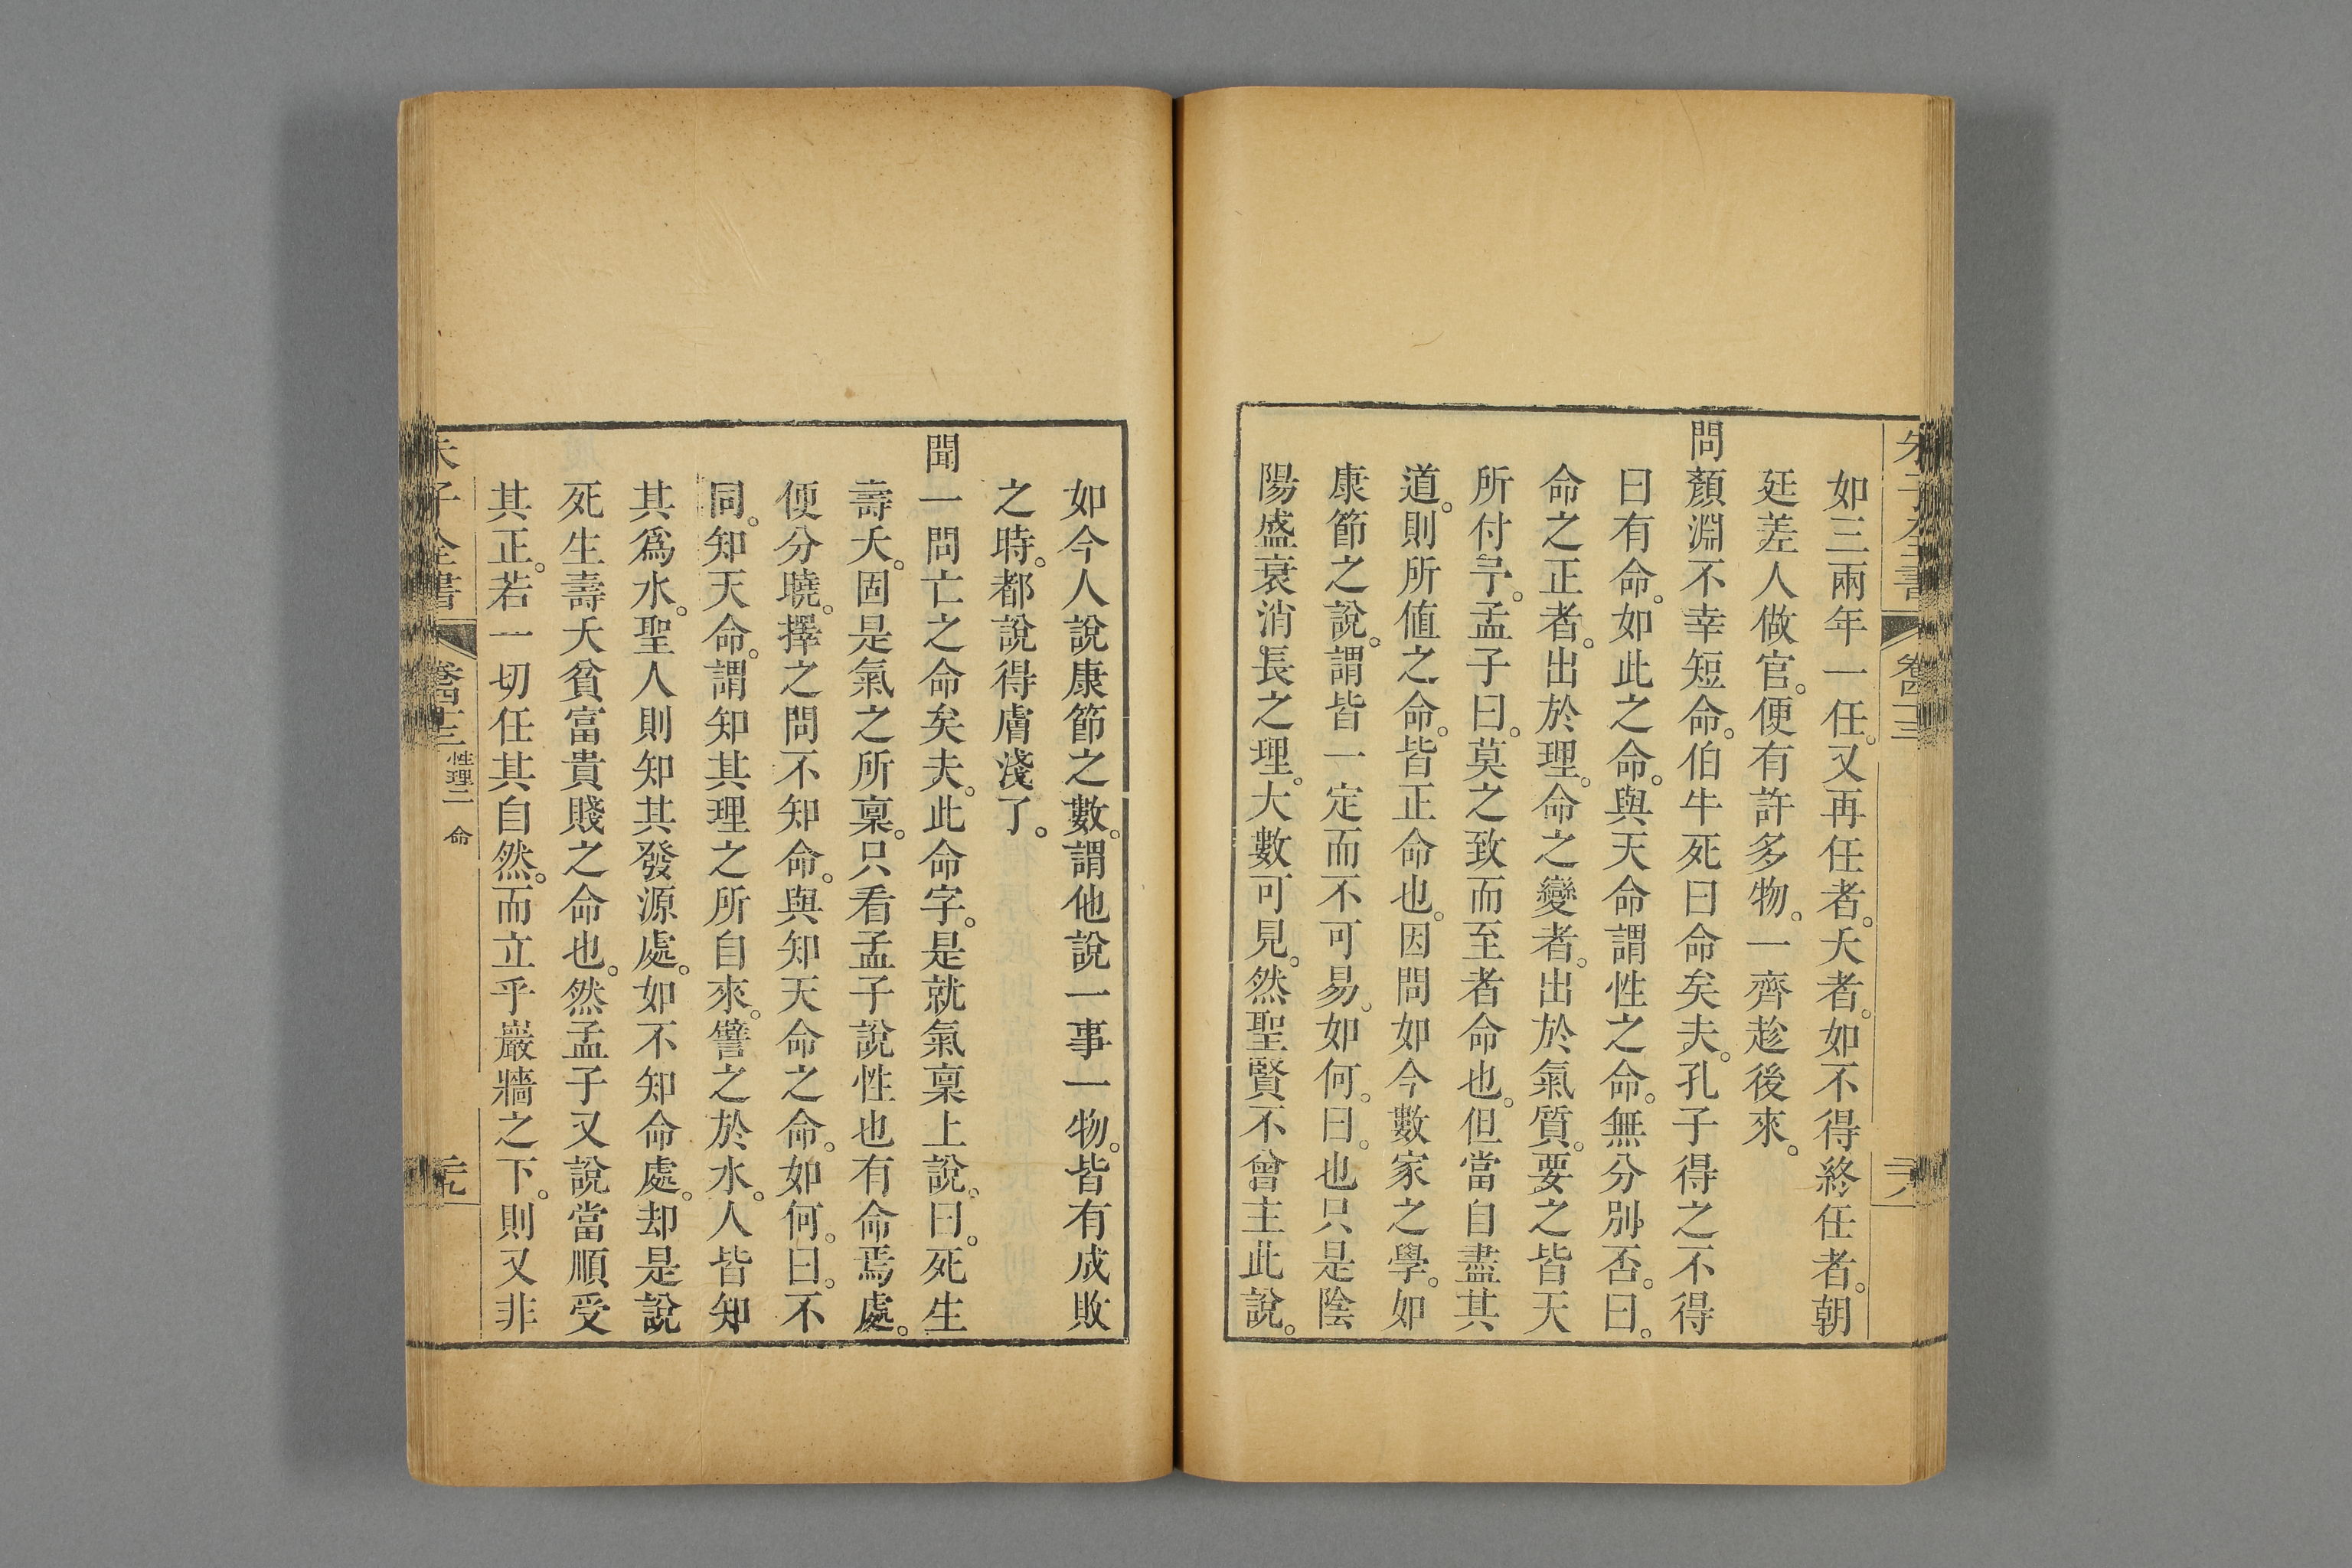 如三兩年一任。又再任者。夭者。如不得終任者。朝
廷差人做官。便有許多物。一齊趁後來。
問顏淵不幸短命。伯牛死曰命矣夫。孔子得之不得
曰有命。如此之命。與天命謂性之命。無分別否。曰。
命之正者。出於理。命之變者。出於氣質。要之皆天
所付予。孟子曰。莫之致而至者命也。但當自盡其
道。則所值之命。皆正命也。因問如今數家之學。如
康節之說。謂皆一定而不可易。如何。曰。也只是陰
陽盛衰消長之理。大數可見。然聖賢不曾主此說。
如今人說康節之數。謂他說一事一物。皆有成敗
之時。都說得膚淺了。
聞一問亡之命矣夫。此命字。是就氣稟上說。曰。死生
壽夭。固是氣之所稟。只看孟子說性也有命焉處。
便分曉。擇之問不知命。與知天命之命。如何。曰。不
同。知天命。謂知其理之所自來。譬之於水。人皆知
其爲水。聖人則知其發源處。如不知命處。却是說
死生壽夭貧富貴賤之命也。然孟子又說當順受
其正。若一切任其自然。而立乎巖牆之下。則又非
朱子全書 卷四三 性理二 命